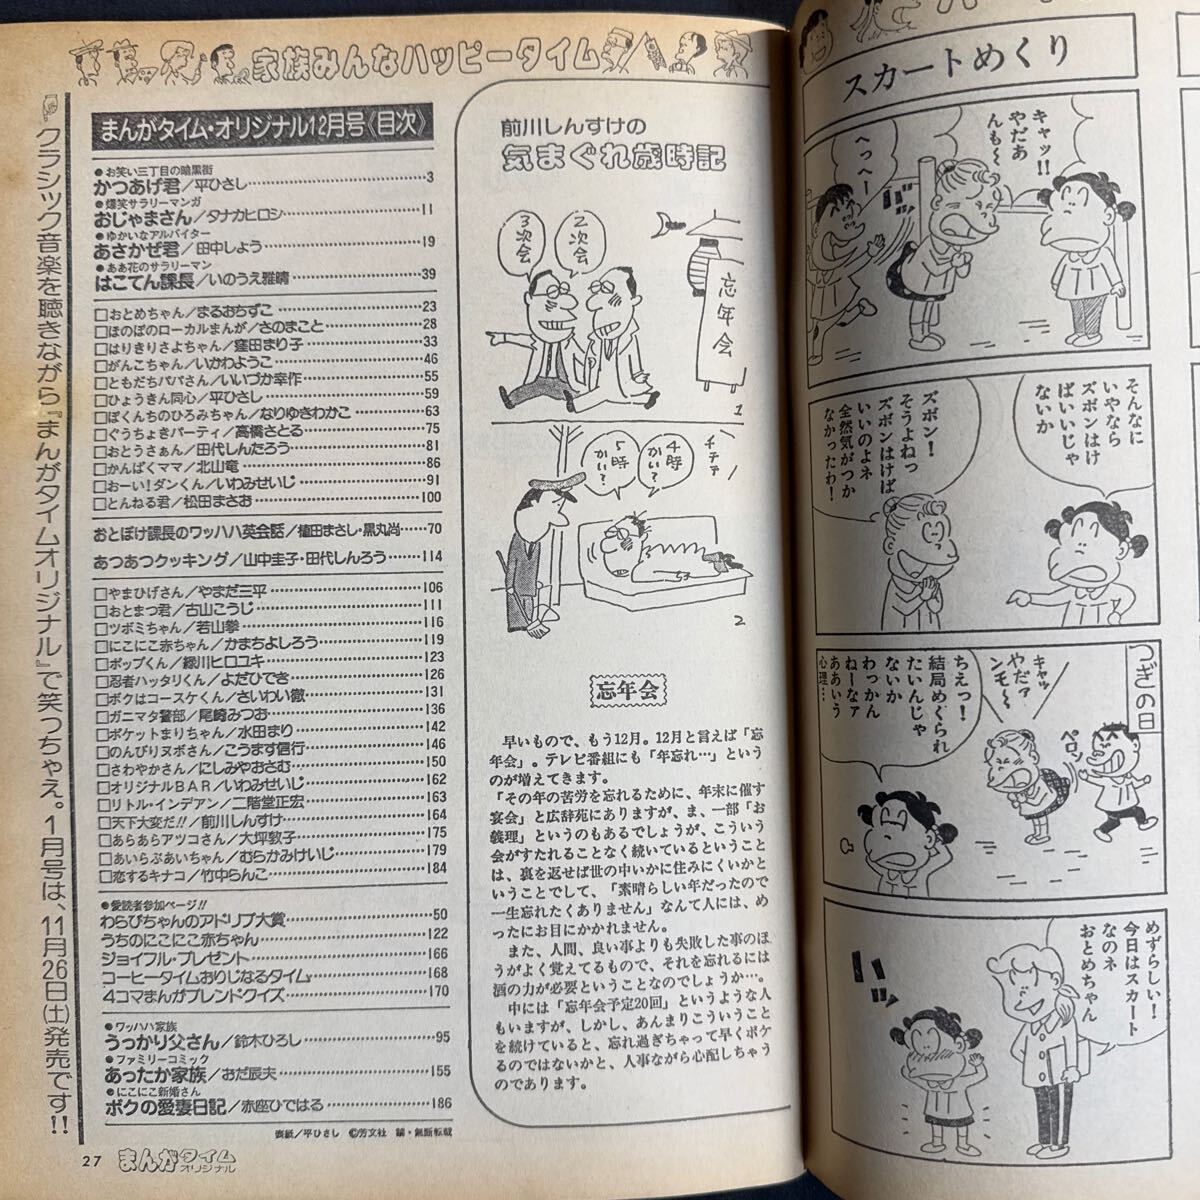 家族みんなハッピータイム
クラシック音楽を聴きながら『まんがタイムオリジナル』で笑っちゃえ。1月号は、11月26日(土)発売です!!
まんがタイム・オリジナル12月号《目次》
●お笑い三丁目の暗黒街
かつあげ君／平ひさし……3
●爆笑サラリーマンガ
おじゃまさん／タナカヒロシ……11
●ゆかいなアルバイター
あさかぜ君／田中しょう……19
●ああ花のサラリーマン
はこてん課長／いのうえ雅晴……39
□おとめちゃん／まるおちずこ……23
□ほのぼのローカルまんが／さのまこと……28
□はりきりさよちゃん／窪田まり子……33
□がんこちゃん／いかわようこ……46
□ともだちパパさん／いいづか幸作……55
□ひょうきん同心／平ひさし……59
□ぼくんちのひろみちゃん／なりゆきわかこ……63
□ぐうちょきパーティ／高橋さとる……75
□おとうさぁん／田代しんたろう……81
□かんぱくママ／北山竜……86
□おーい!ダンくん／いわみせいじ……91
□とんねる君／松田まさお……100
おとぼけ課長のワッハハ英会話／植田まさし・黒丸尚……70
あつあつクッキング／山中圭子・田代しんろう……114
□やまひげさん／やまだ三平……106
□おとまつ君／古山こうじ……111
□ツボミちゃん／若山拳……116
□にこにこ赤ちゃん／かまちよしろう……119
□ポップくん／緑川ヒロユキ……123
□忍者ハッタリくん／よだひでき……126
□ボクはコースケくん／さいわい徹……131
□ガニマタ警部／尾崎みつお……136
□ポケットまりちゃん／水田まり……142
□のんびりヌボさん／こうます信行……146
□さわやかさん／にしみやおさむ……150
□オリジナルBAR／いわみせいじ……162
□リトル・インデアン／二階堂正宏……163
□天下大変だ!!／前川しんすけ……164
□あらあらアツコさん／大坪敦子……175
□あいらぶあいちゃん／むらかみけいじ……179
□恋するキナコ／竹中らんこ……184
●愛読者参加ページ!!
わらびちゃんのアドリブ大賞……50
うちのにこにこ赤ちゃん……122
ジョイフル・プレゼント……166
コーヒータイムおりじなるタイム……168
4コマまんがブレンドクイズ……170
●ワッハハ家族
うっかり父さん／鈴木ひろし……95
●ファミリーコミック
あったか家族／おだ辰夫……155
●にこにこ新婚さん
ボクの愛妻日記／赤座ひではる……186
表紙／平ひさし ©芳文社 禁・無断転載
27 まんがタイムオリジナル
前川しんすけの
気まぐれ歳時記
2次会
3次会
忘年会
1
チチチ
4時かい?
5時かい?
2
忘年会
早いもので、もう12月。12月と言えば「忘
年会」。テレビ番組にも「年忘れ…」という
のが増えてきます。
「その年の苦労を忘れるために、年末に催す
宴会」と広辞苑にありますが、ま、一部「お
義理」というのもあるでしょうが、こういう
会がすたれることなく続いているということ
は、裏を返せば世の中いかに住みにくいかと
いうことでして、「素晴らしい年だったので
一生忘れたくありません」なんて人には、め
ったにお目にかかれません。
また、人間、良い事よりも失敗した事のほ
うがよく覚えてるもので、それを忘れるには
酒の力が必要ということなのでしょうか…。
中には「忘年会予定20回」というような人
もいますが、しかし、あんまりこういうこと
を続けていると、忘れ過ぎちゃって早くボケ
るのではないかと、人事ながら心配しちゃう
のであります。
スカートめくり
キャッ!!
やだあ
んも〜
へっへー
そんなに
いやなら
ズボンはけ
ばいいじゃ
ないか
ズボン!
そうよねっ
ズボンはけば
いいのよネ
全然気がつか
なかったわ!
つぎの日
キャッ
やだァ
ンモ〜
ペロン
ちえっ!
結局めくられ
たいんじゃ
ないか
わっかん
ねーなァ
ああいう
心理…
めずらしい!
今日はスカート
なのネ
おとめちゃん